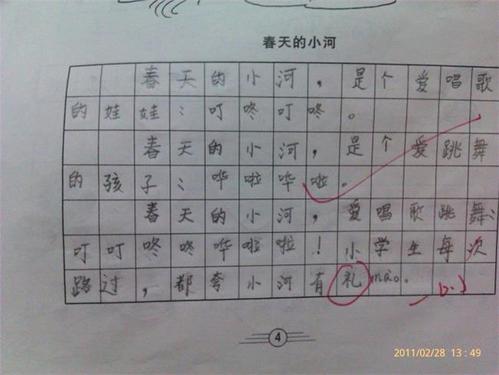 春天的小河
春天的小河,是个爱唱歌
的娃娃:叮咚叮咚。
春天的小河,是个爱跳舞
的孩子:哗啦哗啦。
春天的小河,爱唱歌跳舞:
叮叮咚咚哗啦啦!小学生每次
路过,都夸小河有礼mào。
4
2011/02/28 13:49